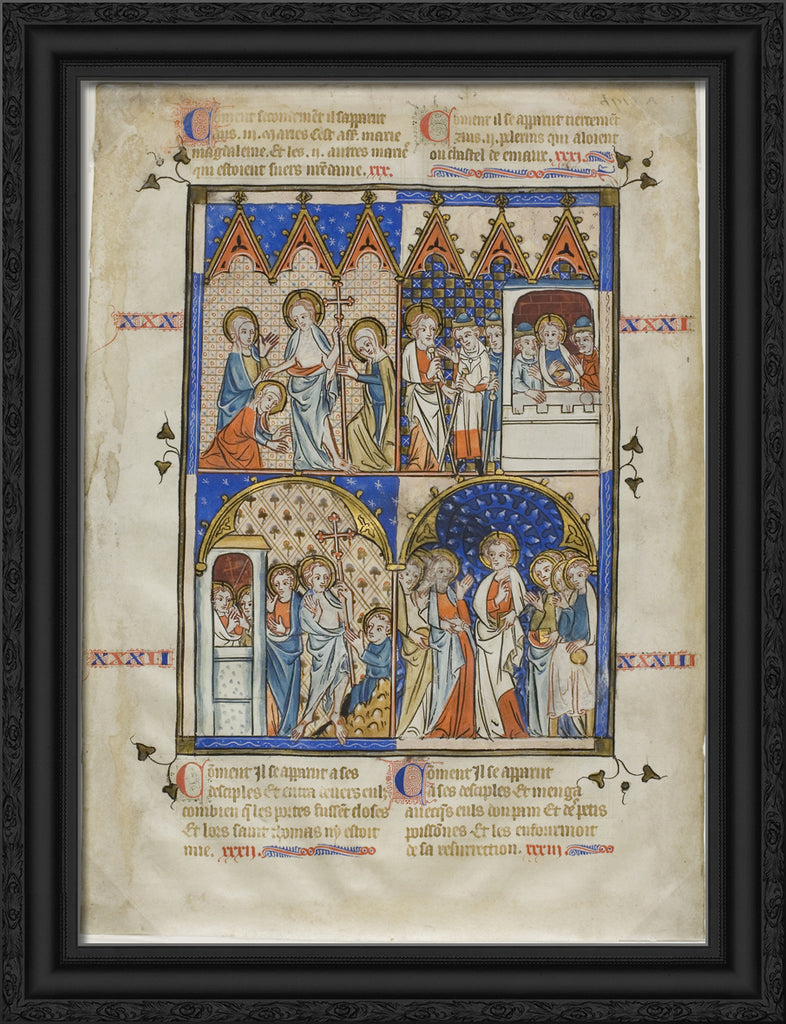 Coment secondemēt il sapparut
aus .iij. Maries Cest asē. marie
magdaleine. Et les .ij. autres marie
qui estoient suers nr̄edame. xxx.
Coment il se apparut tiercemēt
aus .ij. plerins qui aloient
ou chastel de emaux. xxxj.
XXX
XXXI
XXXII
XXXIII
Cōment Jl se apparut a ses
desciples Et entra devers euls
combien q̄ les portes fussēt closes
Et lors saint thomas ny estoit
mie. xxxij.
Cōment Jl se apparut
a ses desciples Et menga
avecq̄s euls don pain Et de petis
poissōnes Et les enfourmoit
de sa resurrection. xxxiij